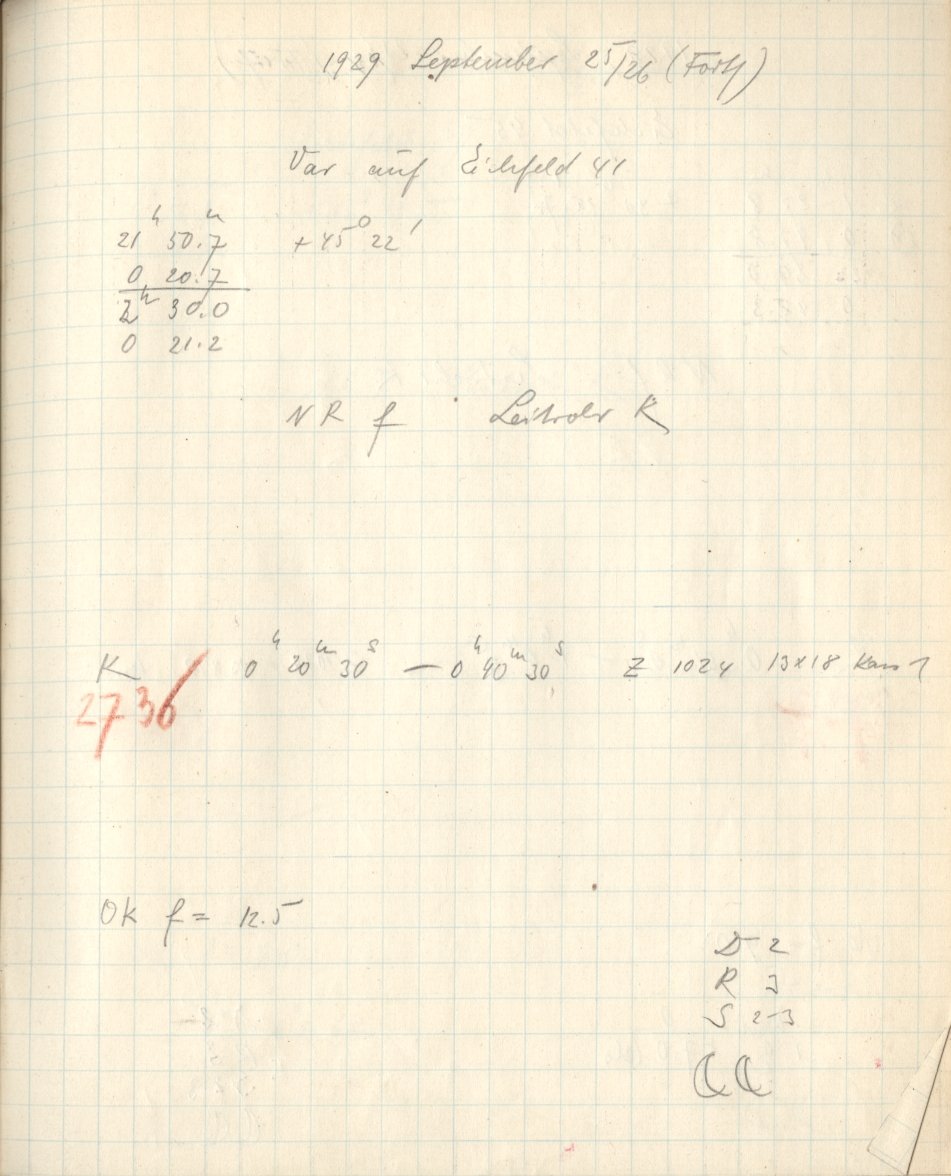 1929 September 25/26 (Forts)
Var auf Eichfeld 41
21ʰ 50.7ᵐ +45° 22'
0 20.7
2ʰ 30.0
0 21.2
NR f Leitrohr K
K 0ʰ 20ᵐ 30ˢ — 0ʰ 40ᵐ 30ˢ Z 1024 13x18 Kass 1
2736
OK f = 12.5
D 2
R 3
S 2-3